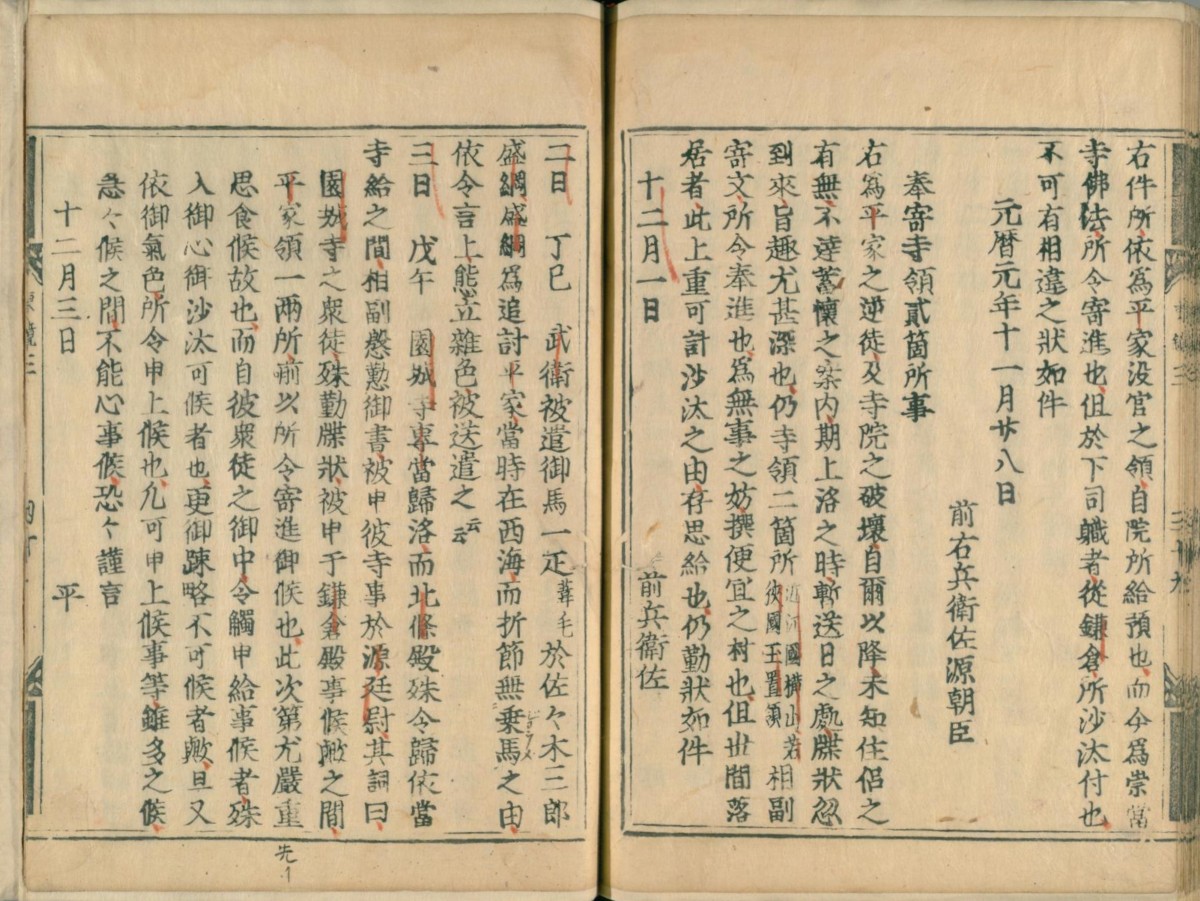 右件所、依爲平家没官之領、自院所給預也、而今爲崇當
寺佛法、所令寄進也、但於下司軄者、從鎌倉、所沙汰付也、
不可有相違之狀如件
元暦元年十一月廿八日
前右兵衛佐源朝臣
奉寄寺領貳箇所事
右爲平家之逆徒、及寺院之破壞、自爾以降、未知住侶之
有無、不達蓄懷之案内、期上洛之時、暫送日之處、牒狀忽
到來、旨趣尤甚深也、仍寺領二箇所 近江國横山 若狹國玉置領 相副
寄文、所令奉進也、爲無事之妨、撰便宜之村也、但世間落
居者、此上重可計沙汰之由、存思給也、仍勤狀如件
十二月一日
前兵衛佐
二日 丁巳 武衛被遣御馬一疋 葦毛 於佐々木三郎
盛綱、盛綱爲追討平家、當時在西海、而折節無乗馬之由、
依令言上、態立雜色、被送遣之云云
三日 戊午 園城寺專當歸洛、而北條殿殊令歸依當
寺給之間、相副慇懃御書、被申彼寺事於源廷尉、其詞曰、
園城寺之衆徒、殊勤牒狀、被申于鎌倉殿事候歟之間、
平家領一兩所、前以所令寄進御候也、此次第尤嚴重
思食候故也、而自彼衆徒之御中、令觸申給事候者、殊
入御心御沙汰可候者也、更御踈略不可候者歟、且又
依御氣色、所令申上候也、凡可申上候事等、雖多之候、
怱々候之間、不能心事候、恐々謹言
十二月三日
平
先1